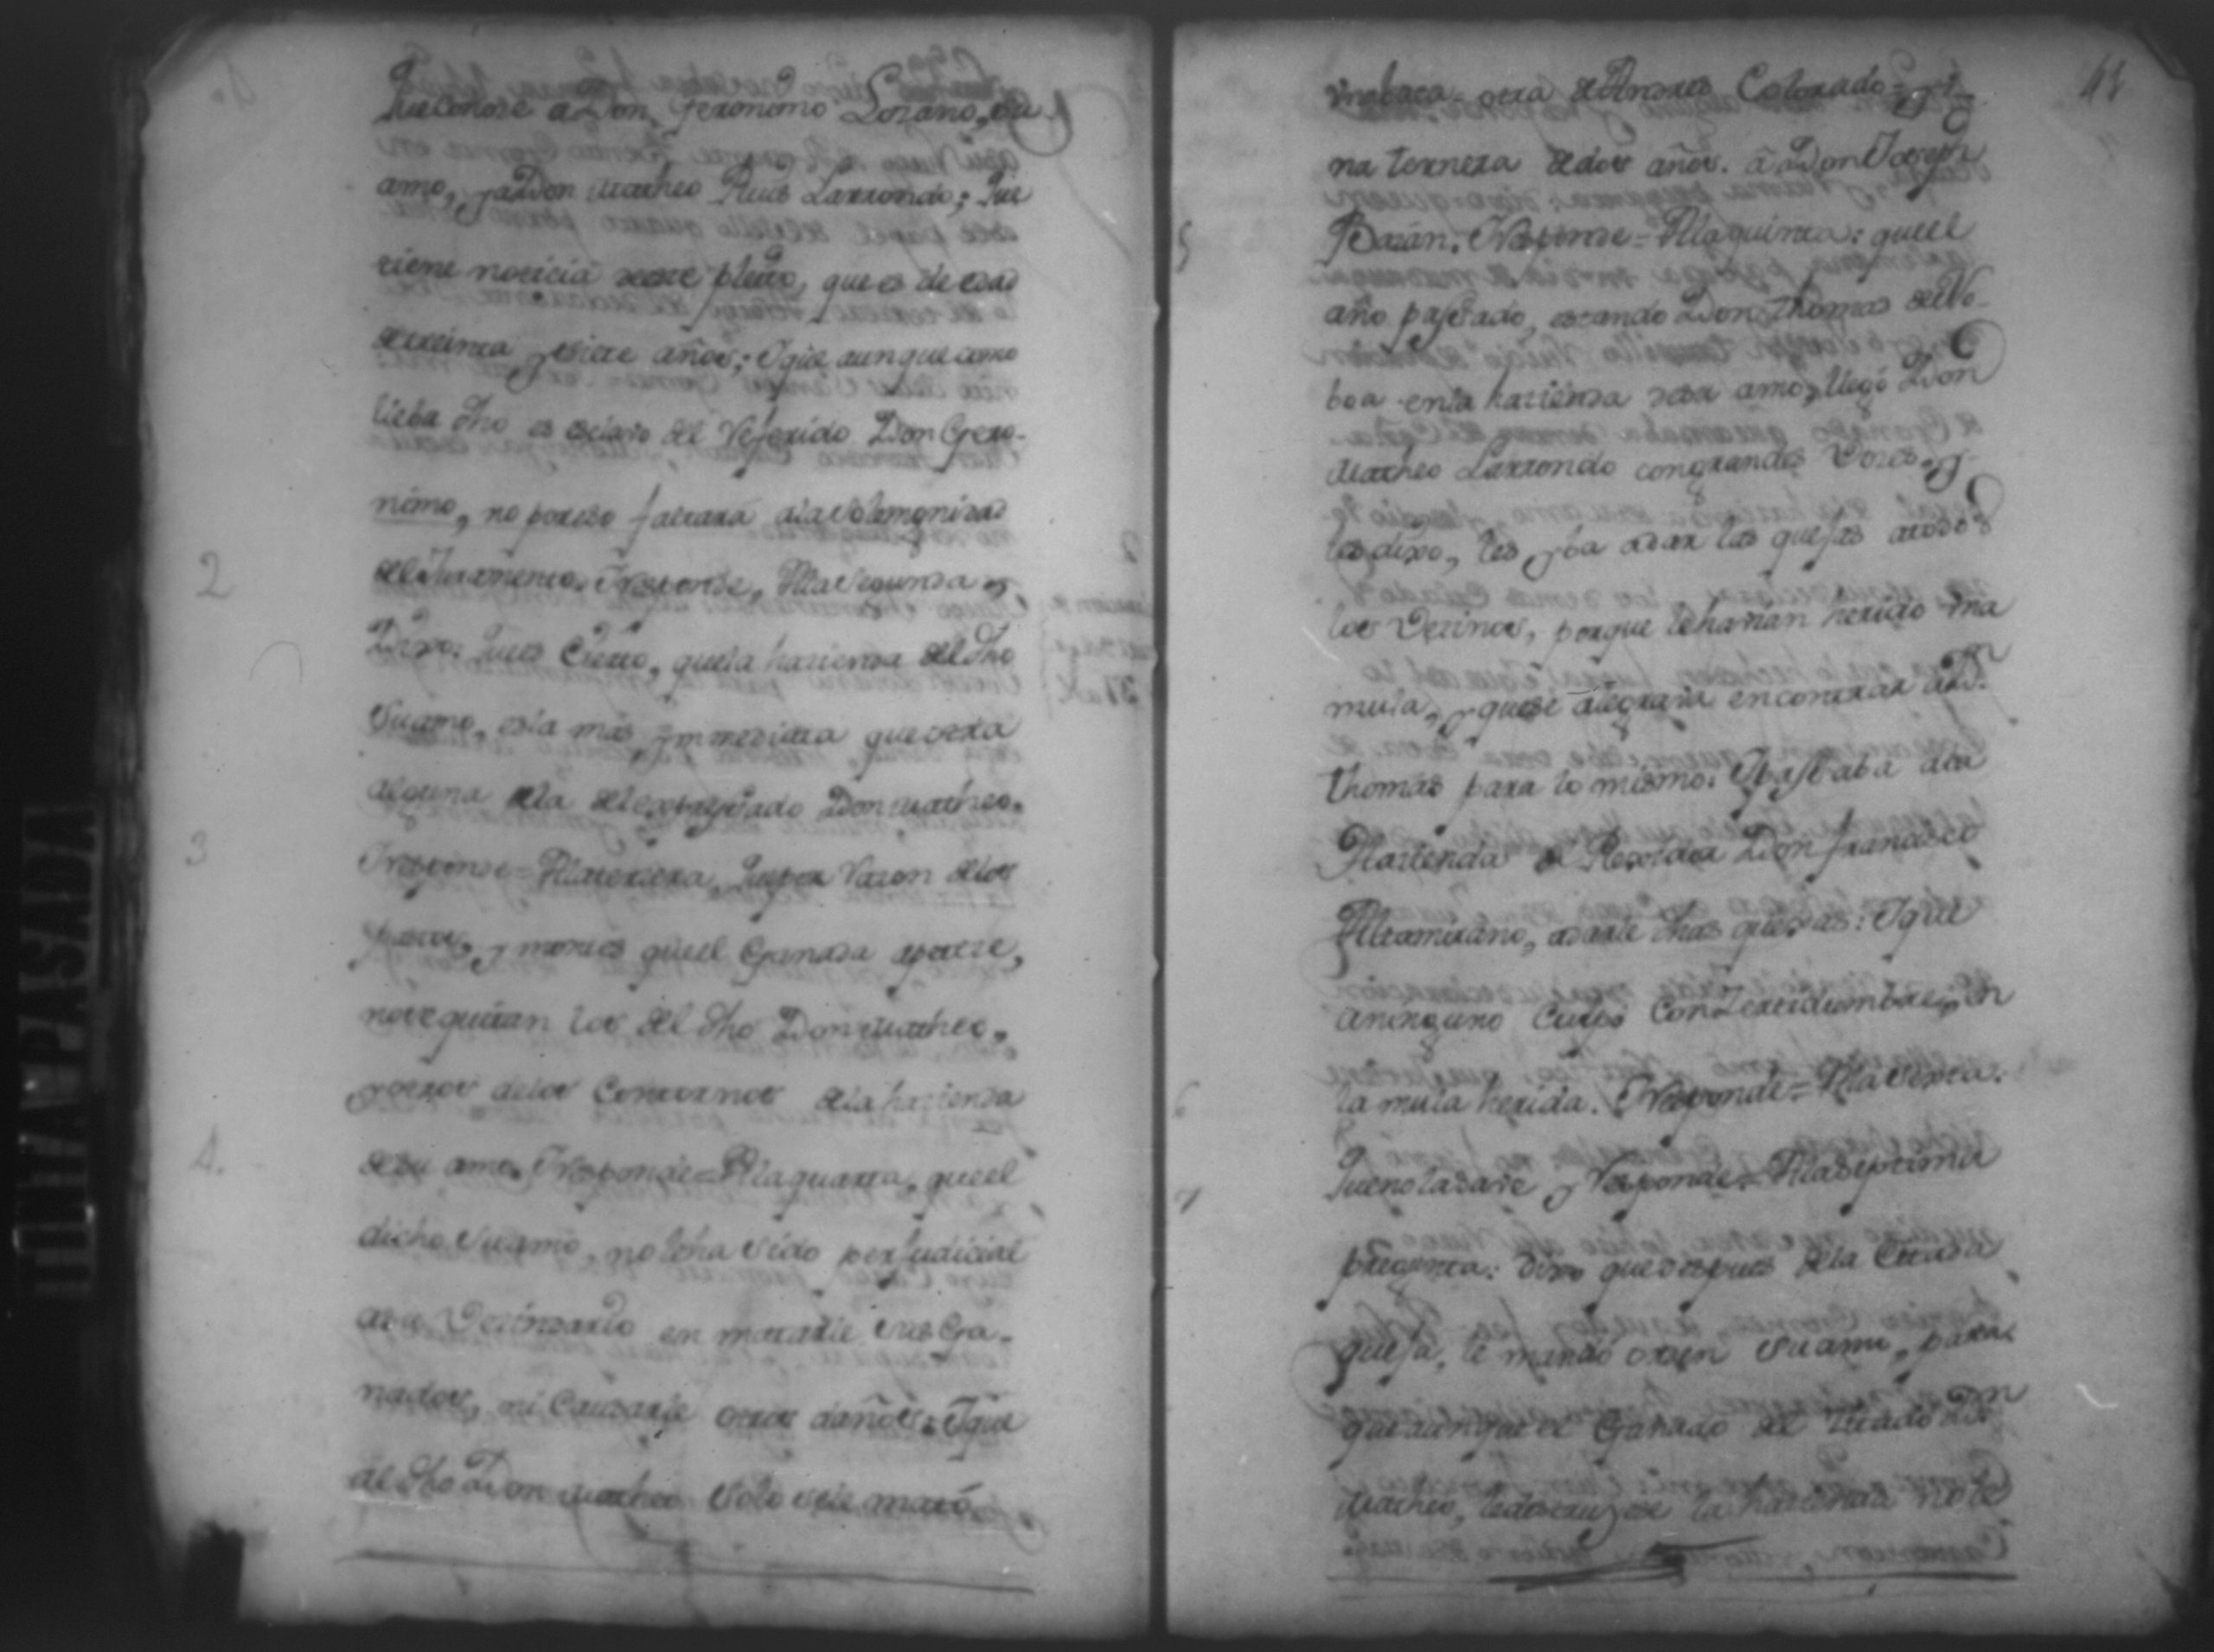 Que Conose a Don Geronimo Lozano, su
amo, y a Don Matheo Ruis Larrondo; Que
tiene noticia deste pleito, que es de edad
de treinta y siete años; Y que aunque como
lleba dho es esclavo del Referido Don Gero-
nimo, no por eso faltara a la Solemnidad
del Juramento. Yresponde, A la segunda
Dixo: Que es Cierto, que la hazienda del dho
Su amo, es la mas ymmediata que otra
alguna a la del expressado Don Matheo.
Yresponde = A la tercera, Que por Razon de los
pastos, y montes que el Ganado apetece,
nose quitan los del dho Don Matheo,
y otros de los Contornos de la hazienda
de su amo. Yresponde = A la quarta, que el
dicho Su amo, no le ha sido perjudicial
a su Vecindario en matarle sus Ga-
nados, ni Causarle otros daños: Y que
al dho Don Matheo Solo se le mató
una baca otra de Andres Colorado = y
na ternera de dos años. â Don Joseph
Bazán. Yresponde = A la quinta: que el
año passado, estando Don Thomas de No-
boa en la hazienda de su amo, llegó Don
Matheo Larrondo con grandes Voces, y
les dixo, les yba a dar las quejas a todos
los Vecinos, porque le havian herido una
mula, y que se alegraria encontrar a Dn
Thomas para lo mismo: Y passaba a la
Hazienda del Regidor Don Francisco
Altamirano, a darle dhas quejas: Y que
a ninguno Culpó Con Zertidumbre, en
la mula herida. Yresponde = A la Sexta:
Que no la save y Responde = A la Septima
pregunta: Dixo que despues de la Citada
queja, le mandó orden su amo, para
que aunque el Ganado del Citado Dn
Matheo, le destruyese la hazienda no le
2
3
4.
5
6
7